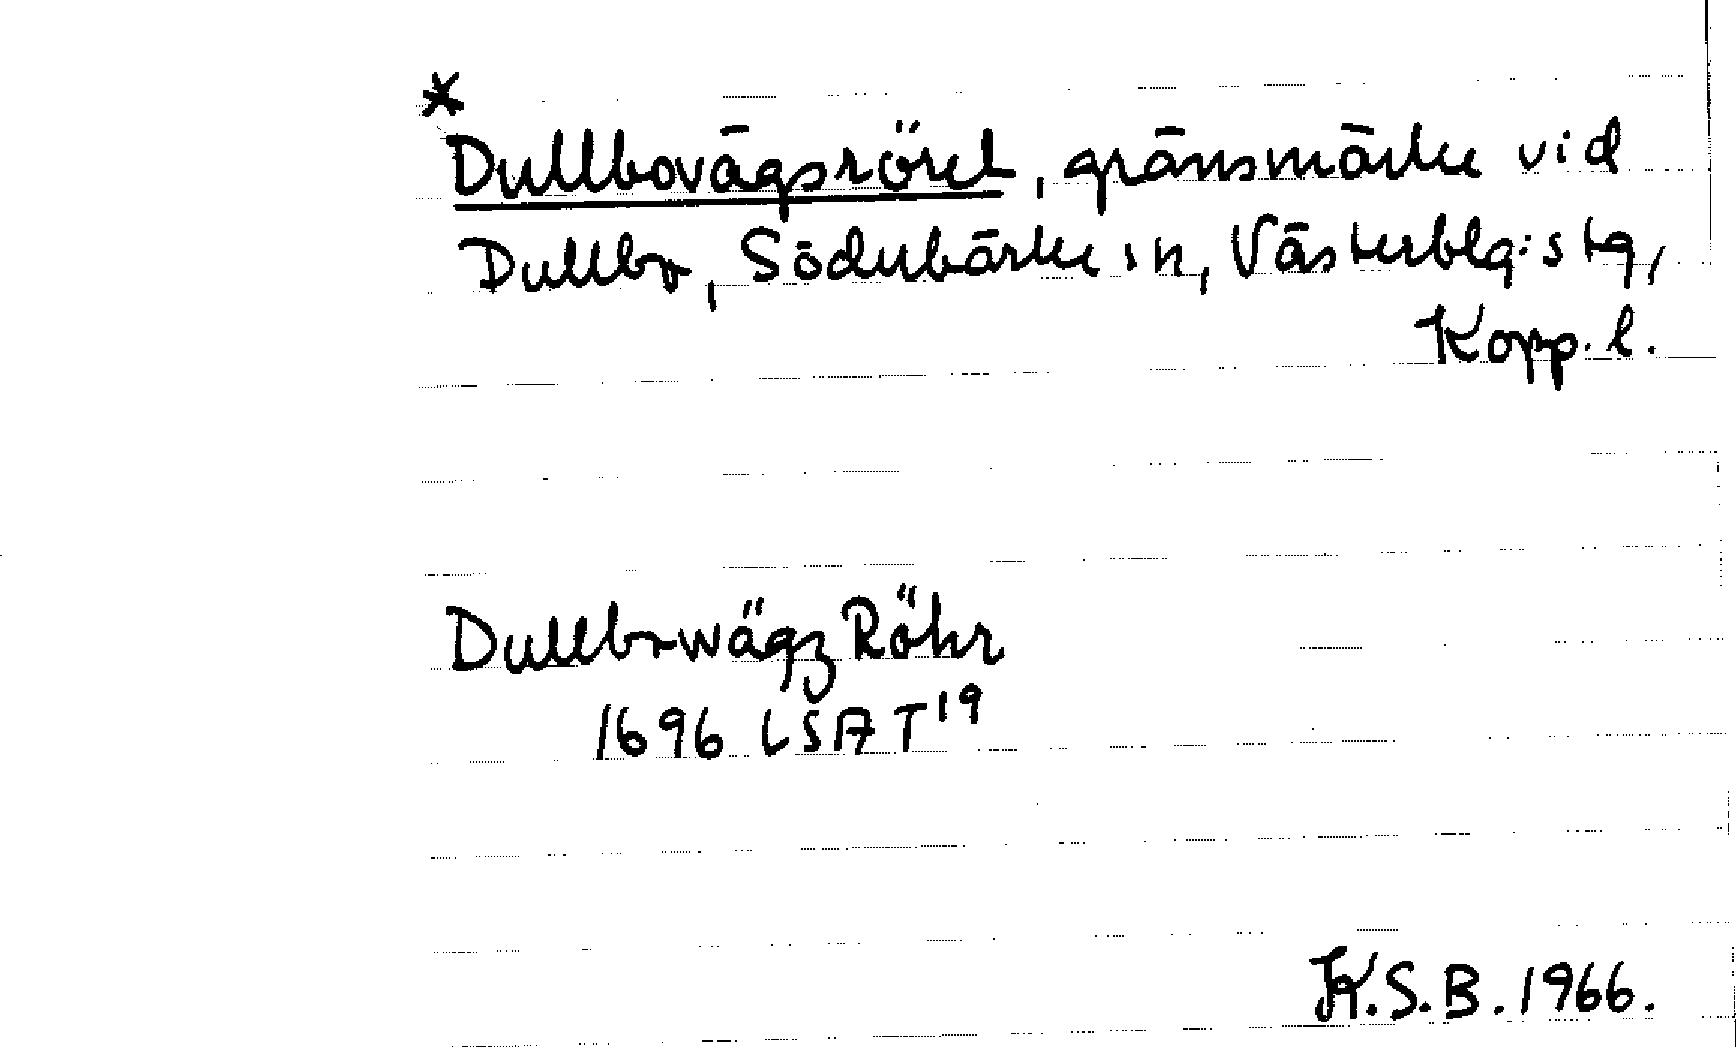 *
Dullbovägsröret, gränsmärke vid
Dullbo, Söderbärke sn, Västerblg:s tg,
Kopp. l.
Dullbowägz Röhr
1696 LSA T19
K.S.B. 1966.